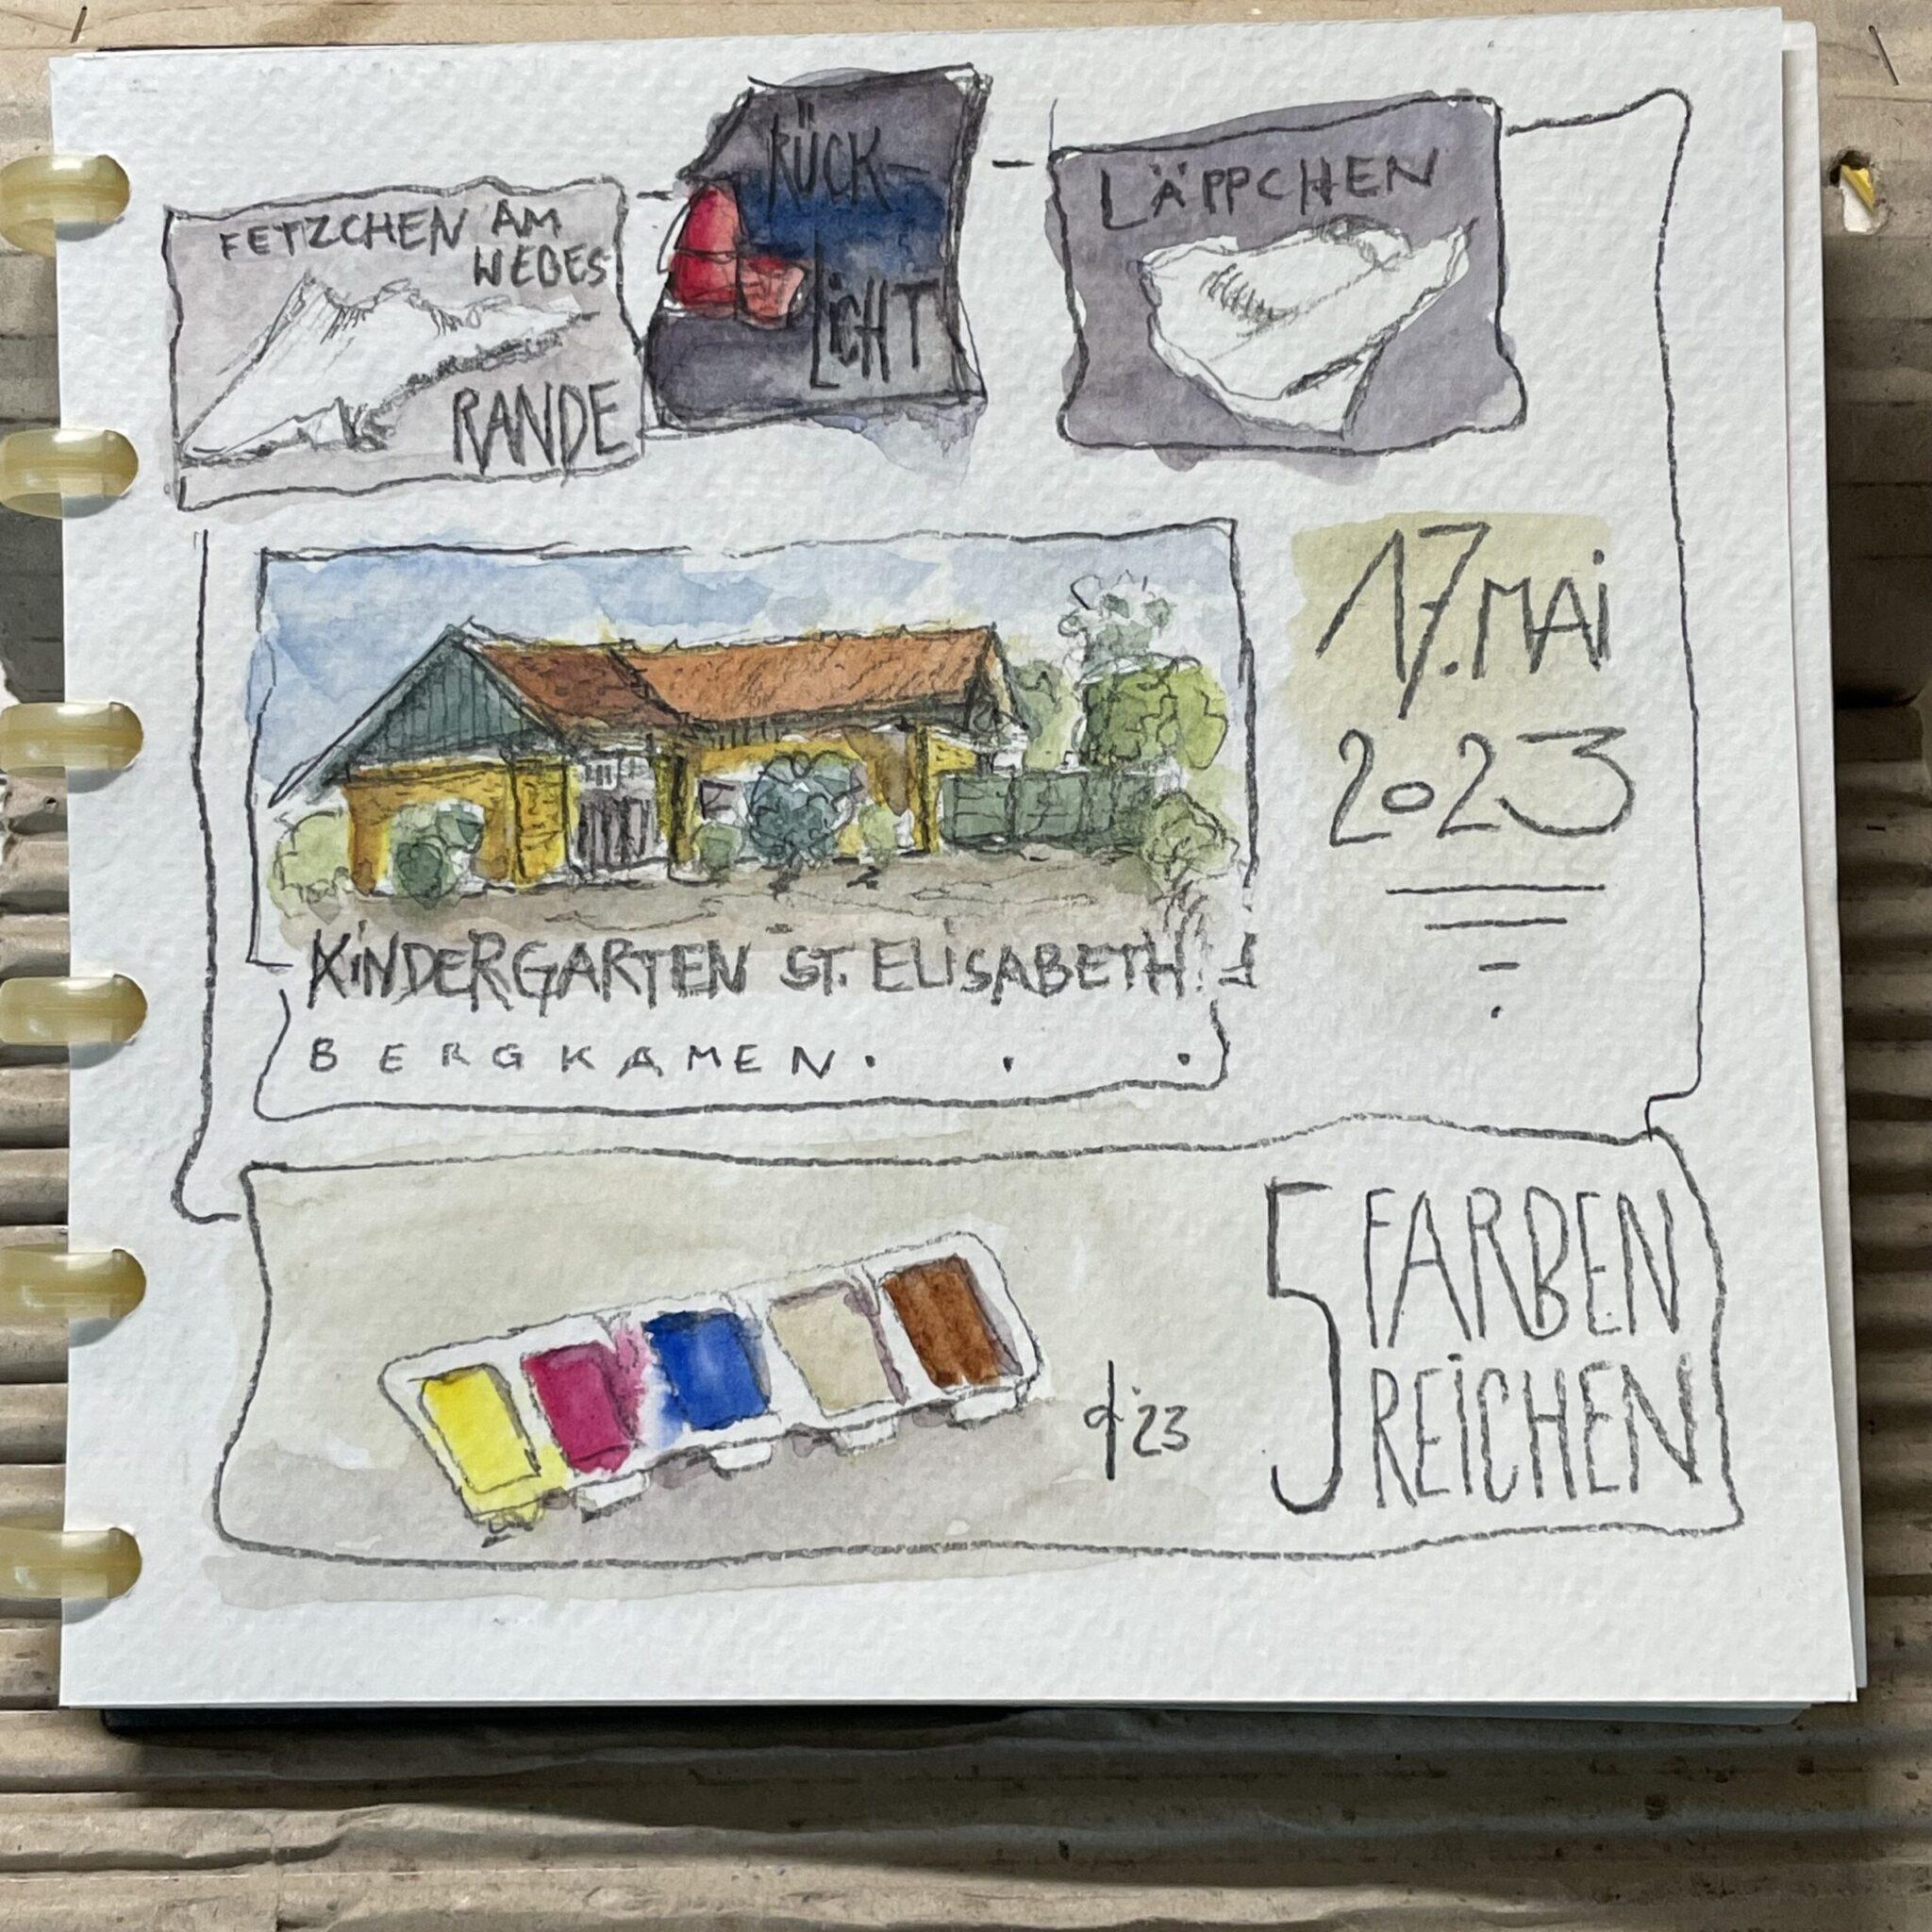 FETZCHEN AM
WEGES
RANDE
RÜCK-
LICHT
LÄPPCHEN
17. MAi
2023
KiNDERGARTEN ST. ELiSABETH
BERGKAMEN...
'23
5 FARBEN
REiCHEN